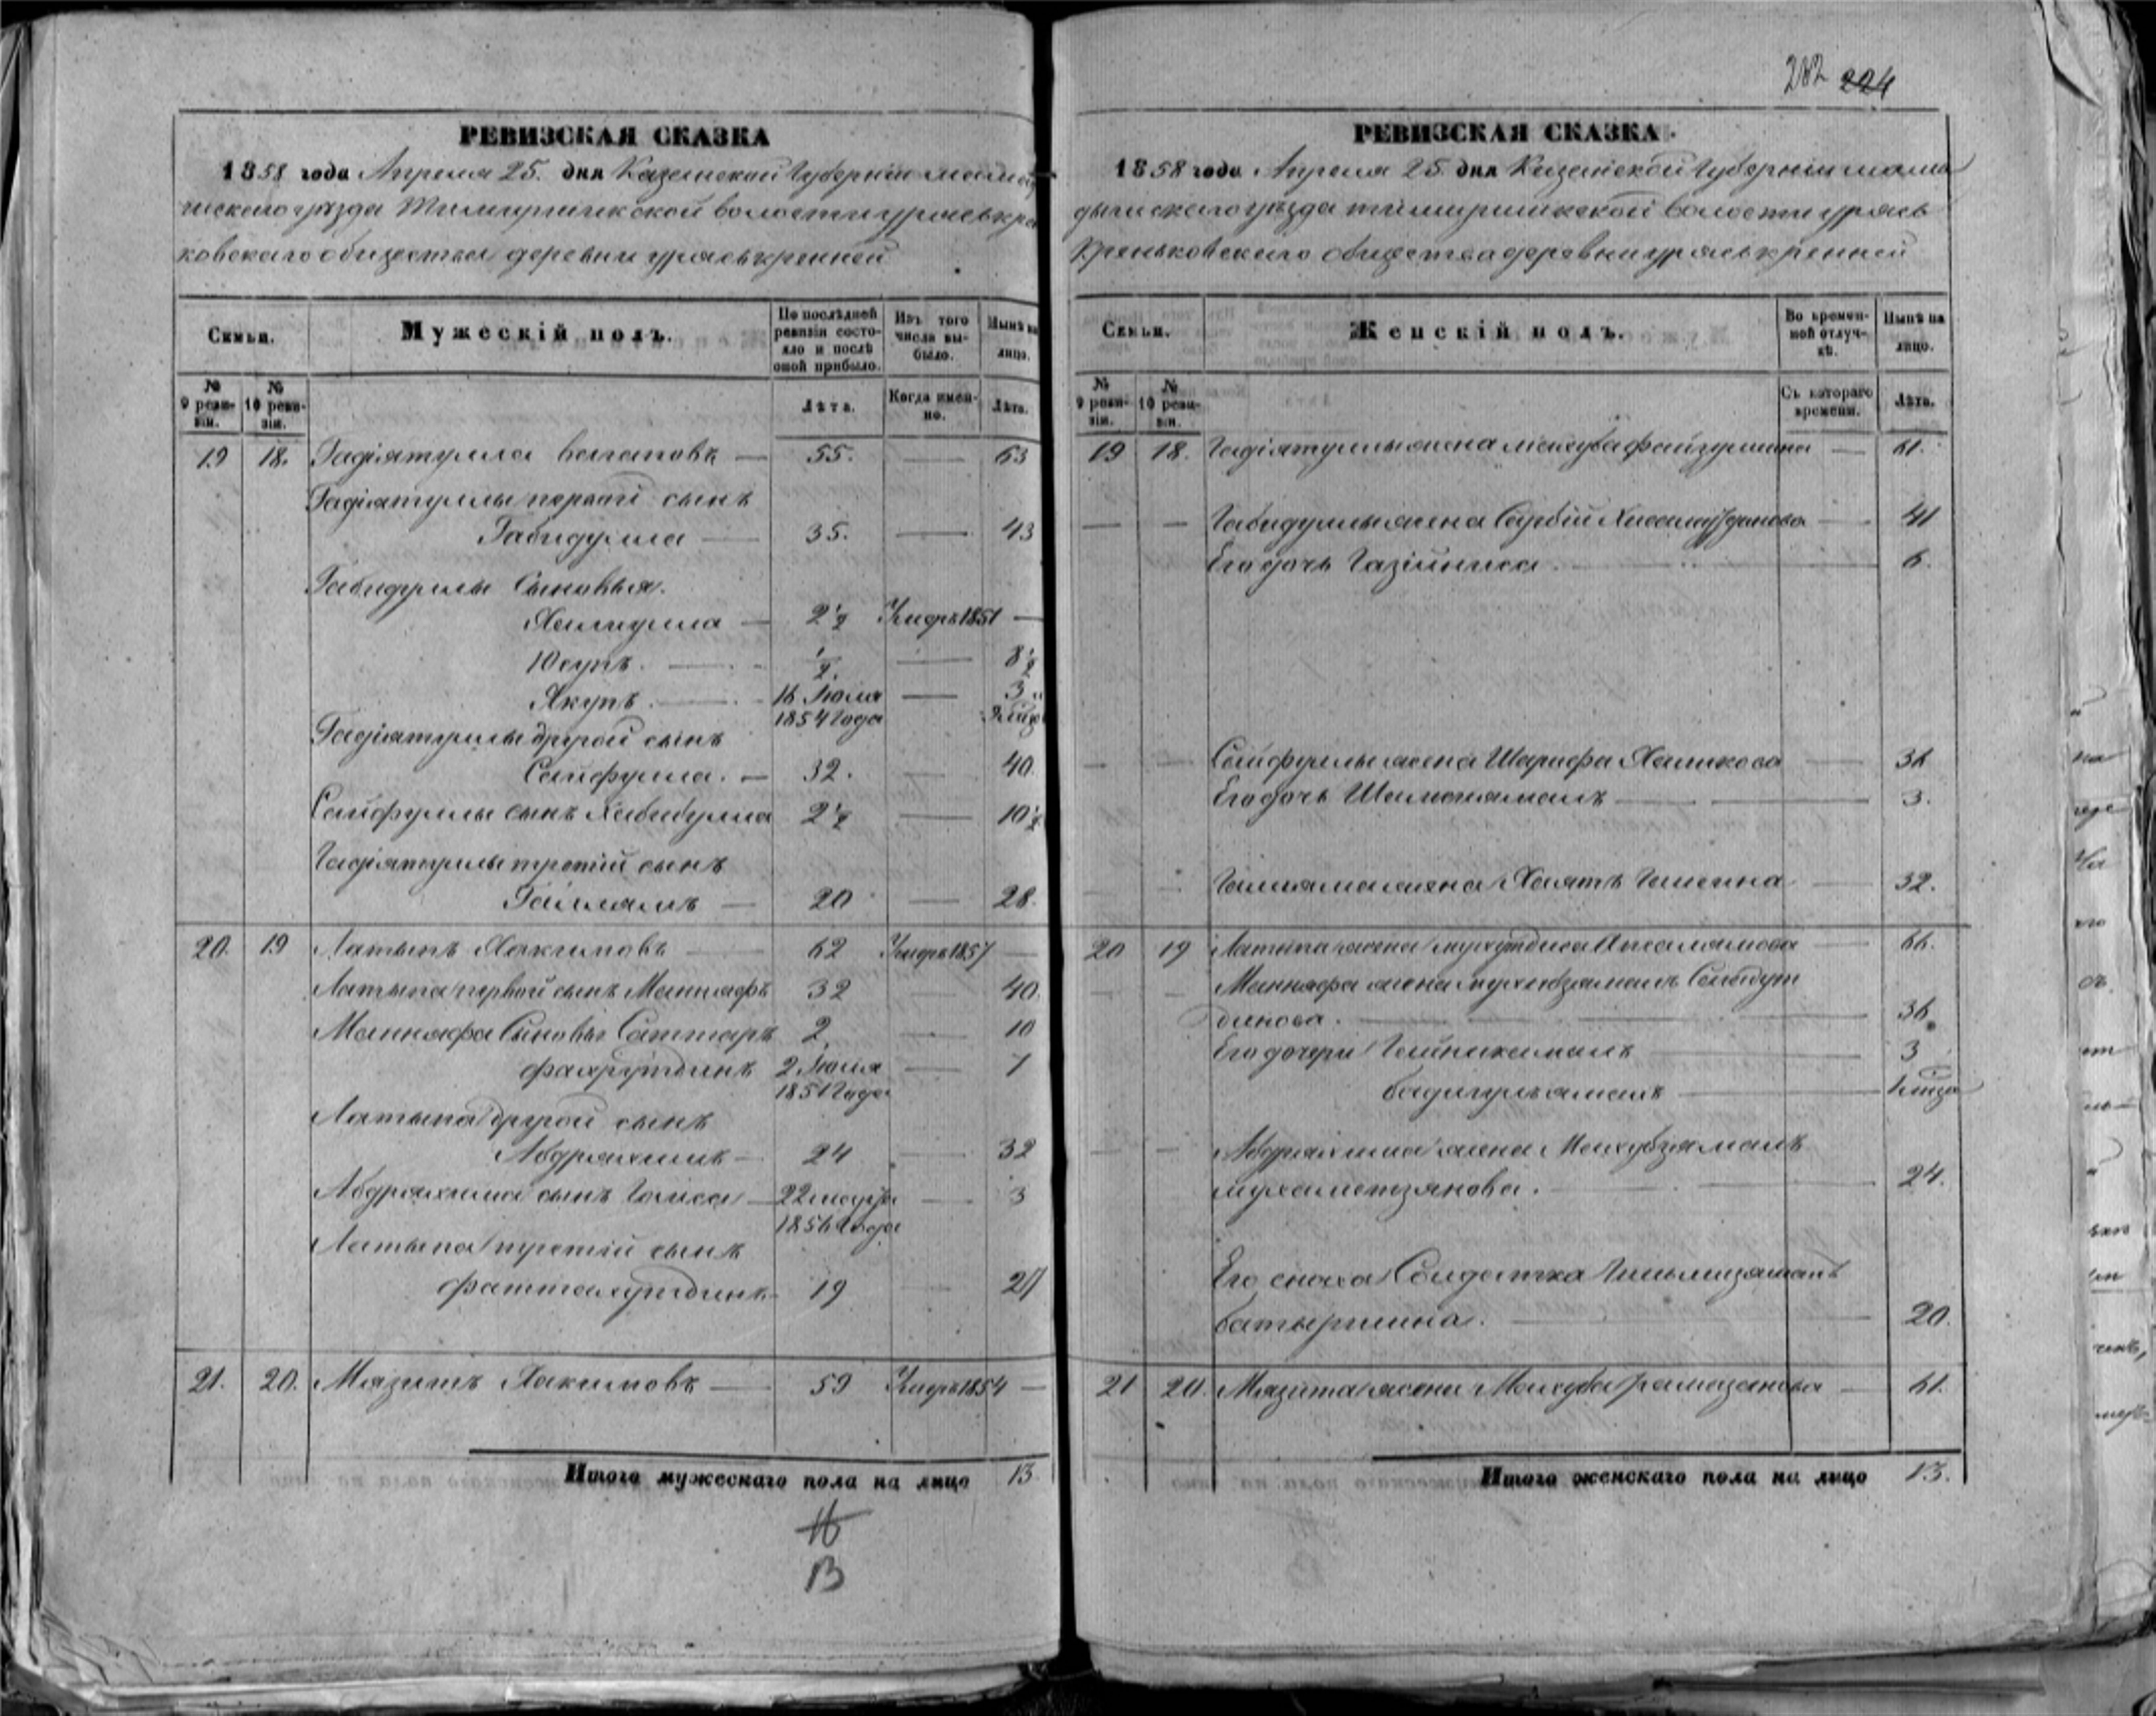 282 224
РЕВИЗСКАЯ СКАЗКА
1858 года Апреля 25. дня Казанской Губерніи мамады
шскаго уѣзда Тимиршикской волости уряськре
ковскаго общества деревни урясь кренней
Семьи.
Мужескій полъ.
По послѣдней ревизіи состояло и послѣ оной прибыло.
Изъ того числа выбыло.
Нынѣ на лицо.
№ 9 ревизіи.
№ 10 ревизіи.
Лѣта.
Когда именно.
Лѣта.
19 18. Гадіятулла — 55. — 63
Гадіятуллы первой сынъ
Габидулла — 35. — 43
Габидуллы Сыновья.
Халиулла — 2½ Умеръ 1851 —
Юсупъ. — ½ — 8½
Якупъ. — 16 Іюля 1854 года — 3
Гадіятуллы другой сынъ
Сайфулла. — 32. — 40.
Сайфуллы сынъ Хабибулла 2½ — 10½
Гадіятуллы третій сынъ
20 — 28.
20. 19 Латыпъ Хакимовъ — 62 Умеръ 1857 —
Латыпа первой сынъ Маннафъ 32 — 40.
Маннафа Сыновья Саттаръ 2 — 10
Фахрутдинъ 2 Іюля 1851 года — 7
Латыпа другой сынъ
Абдрахимъ — 24 — 32
Абдрахима сынъ — 22 1856 года — 3
Латыпа третій сынъ
Фаттахутдинъ 19 — 27
21. 20. Мязитъ Хакимовъ — 59 Умеръ 1854 —
Итого мужескаго пола на лицо 13.
16
13
РЕВИЗСКАЯ СКАЗКА.
1858 года Апреля 25 дня Казанской Губерніи мама
дышскаго уѣзда тимиршикской волости урясь
Креньковскаго общества деревни урясь кренней
Семьи.
Женскій полъ.
Во временной отлучкѣ.
Нынѣ на лицо.
№ 9 ревизіи.
№ 10 ревизіи.
Съ котораго времени.
Лѣта.
19 18. Гадіятуллы жена Махуба Файзуллина — 61.
— — Габидуллы жена Сарбій — 41
Его дочь — 6.
— — Сайфуллы жена Шарифа Халикова — 36
Его дочь — 3.
жена Хаятъ — 32.
20 19 Латыпа жена — 66.
— — Маннафа жена Сайфут
динова. — 36
Его дочери — 3
Бадигулзаманъ —
— — Абдрахима жена Махубзяманъ
мухаметзянова. — 24.
Его сноха Солдатка
батыршина. — 20.
21 20. Мязита жена Махуба рамазанова — 61.
Итого женскаго пола на лицо 13.